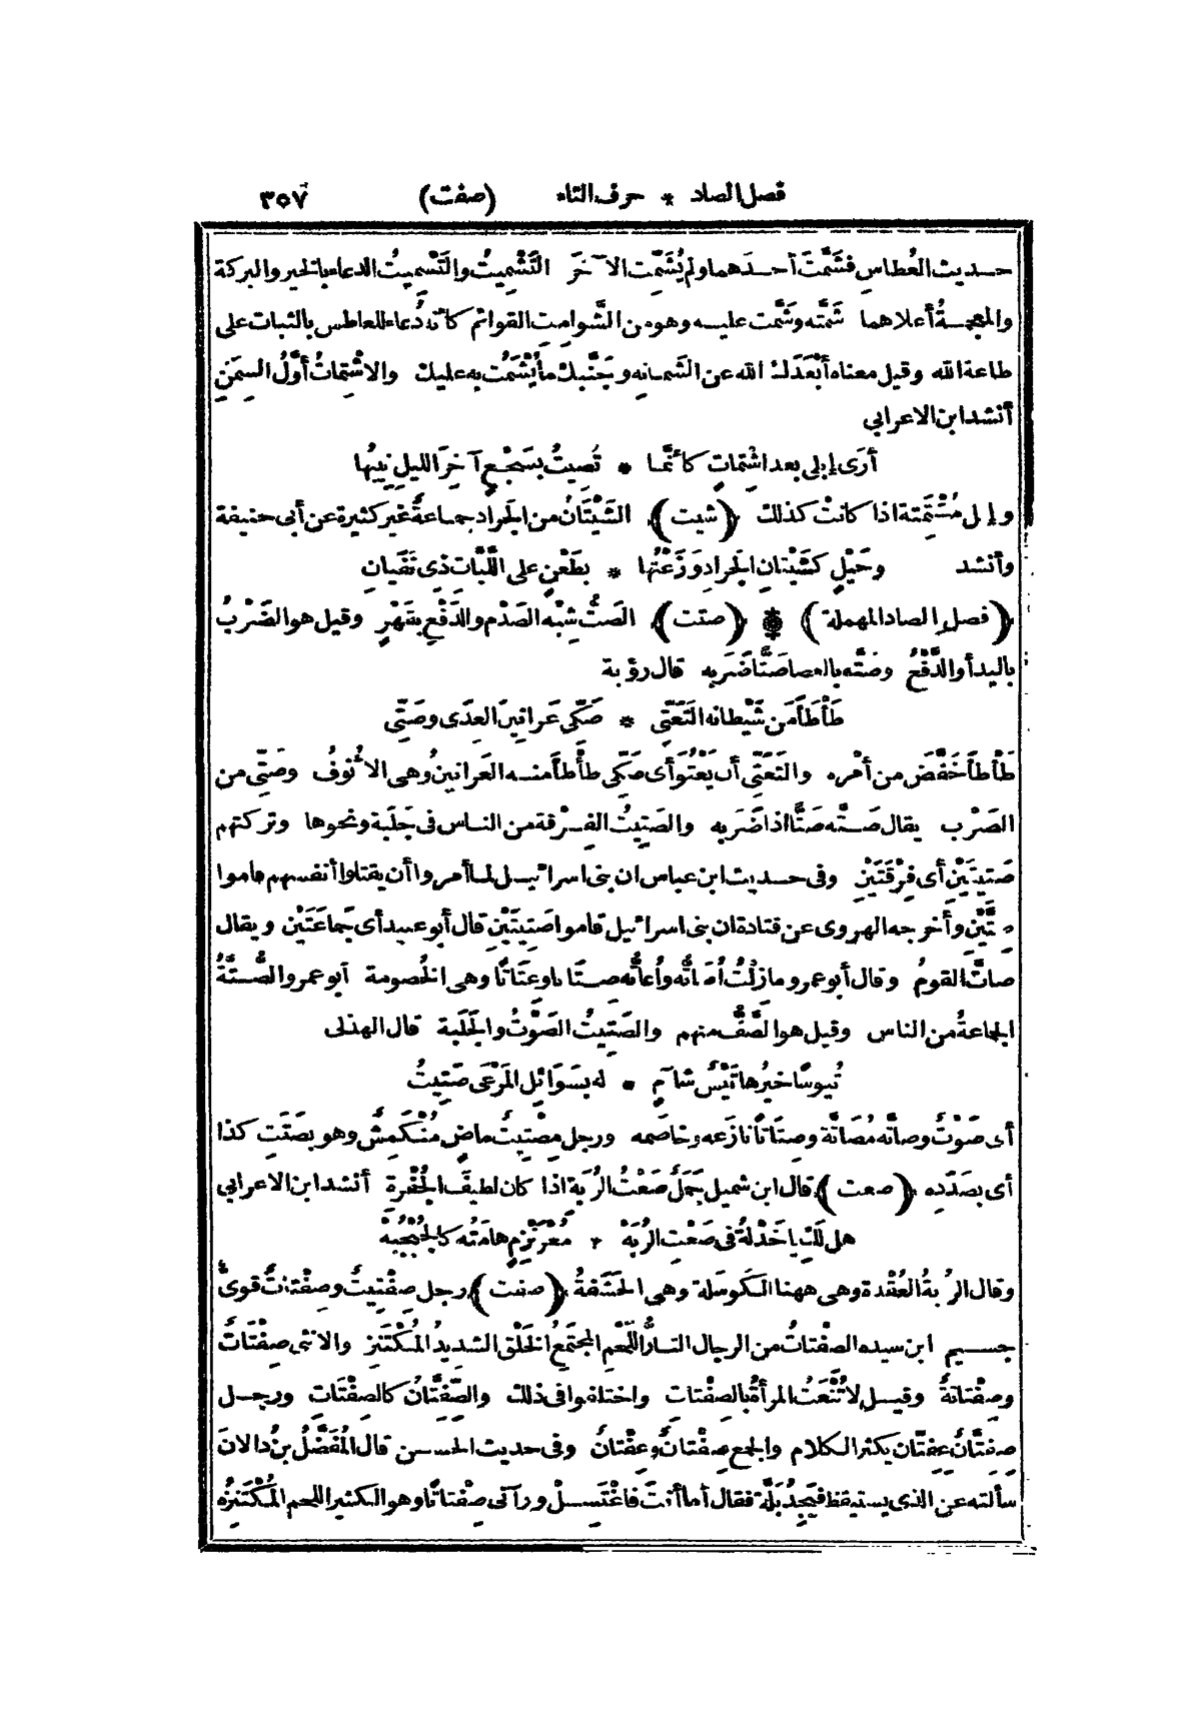 فصل الصاد * حرف التاء (صفت) ٣٥٧
حديث العُطاسِ فشَمَّتَ أحدَهما ولم يُشَمِّت الآخَرَ التَّشْمِيتُ والتَّسْمِيتُ الدعاء بالخير والبركة
والمعجمةُ أعلاهما شَمَّته وشَمَّت عليه وهو من الشَّوامِتِ القوائم كأنه دُعاء للعاطس بالثبات على
طاعة الله وقيل معناه أَبْعَدَك الله عن الشَماتةِ وجَنَّبك ما يُشْمَتُ به عليك والاشْتِماتُ أوَّلُ السِمَنِ
أنشد ابن الاعرابي
أَرَى إبلى بعد اشْتِماتٍ كأنَّما * تُصِيتُ بسَجْعٍ آخِرَ الليلِ نِيبُها
وإبل مُشْتَمِتة اذا كانتْ كذلك (شيت) الشَّيْتَانُ من الجَراد جماعةٌ غير كثيرة عن أبى حنيفة
وأنشد وخَيْلٍ كشَيْتانِ الجَرادِ وَزَعْتُها * بطَعْنٍ على اللَّبَّاتِ ذى نَفَيانِ
(فصل الصاد المهملة) * (صتت) الصَتُّ شِبْه الصَدْم والدَفْعِ بقَهْرٍ وقيل هو الضَرْبُ
باليد أو الدَّفْعُ وصَتَّه بالعصا صَتًّا ضَرَبه قال رؤبة
طَأْطَأَ مَن شَيْطانه التَعَتِّى * صَكِّى عَرانِينَ العِدَى وصَتِّى
طَأْطأَ خَفَّضَ من أمْره والتَعَتِّى أَن يَعْتُوَ أى صَكِّى طأْطأَ منه العَرانينُ وهى الأُنوفُ وصَتِّى من
الصَرْب يقال صَتَّه صَتًّا اذا ضَرَبه والصَتِيتُ الفِرْقة من الناس فى جَلَبة ونحوها وتركتهم
صَتِيتَيْنِ أى فِرْقَتَيْنِ وفى حديث ابن عباس ان بنى اسرائيل لما أمروا أن يقتلوا أنفسهم قاموا
صِتَّيْنِ وأخرجه الهروى عن قتادة ان بنى اسرائيل قاموا صَتِيتَيْنِ قال أبو عبيد أى جَماعَتَيْن ويقال
صاتَّ القومُ وقال أبو عمرو ما زِلْتُ أُصَاتُّه وأُعاتُّه صِتَاتًا وعِتَاتًا وهى الخُصومة أبو عمرو الصُّتَّةُ
الجَماعةُ من الناس وقيل هو الصَّفُّ منهم والصَتِيتُ الصَوْتُ والجَلَبة قال الهذلى
تُيوسًا خيرُها تَيْسٌ شآمٍ * له بسَوائلِ المَرْعَى صَتِيتُ
أى صَوْتٌ وصاتَّه مُصَاتَّة وصِتَاتًا نازَعه وخاصَمه ورجل مِصْتِيتٌ ماضٍ مُنْكَمِشٌ وهو بصَتَتِ كذا
أى بصَدَدِه (صعت) قال ابن شميل جَمَلٌ صَعْتُ الرُبَةِ اذا كان لطيفَ الجُفْرة أنشد ابن الاعرابى
هل لكِ يا خَدْلةُ فى صَعْتِ الرُبَهْ * مُعْرَنْزِمٍ هامَتُه كالجُبْجُبَهْ
وقال الرُبةُ العُقْدة وهى ههنا الكَوسَلة وهى الحَشَفةُ (صفت) رجل صِفْتِيتٌ وصِفْتاتٌ قوىٌّ
جسيم ابن سيده الصِفْتاتُ من الرجال التارُّ اللَّحْمِ المُجتمِعُ الخَلْق الشديدُ المُكْتَنِز والانثى صِفْتاتٌ
وصِفْتاتةٌ وقيل لا تُنْعَتُ المرأةُ بالصِفْتات واختلفوا فى ذلك والصِّفِتَّانُ كالصِفْتات ورجل
صِفِتَّانٌ عِفِتَّان يكثر الكلام والجمع صِفْتانٌ وعِفْتانٌ وفى حديث الحسن قال المُفَضَّلُ بنُ دالانَ
سألته عن الذى يستيقظ فيَجِدُ بَلَّةً فقال أما أنتَ فاغْتَسِلْ ورآنى صِفْتاتًا وهو الكثير اللحم المُكْتَنِزُه